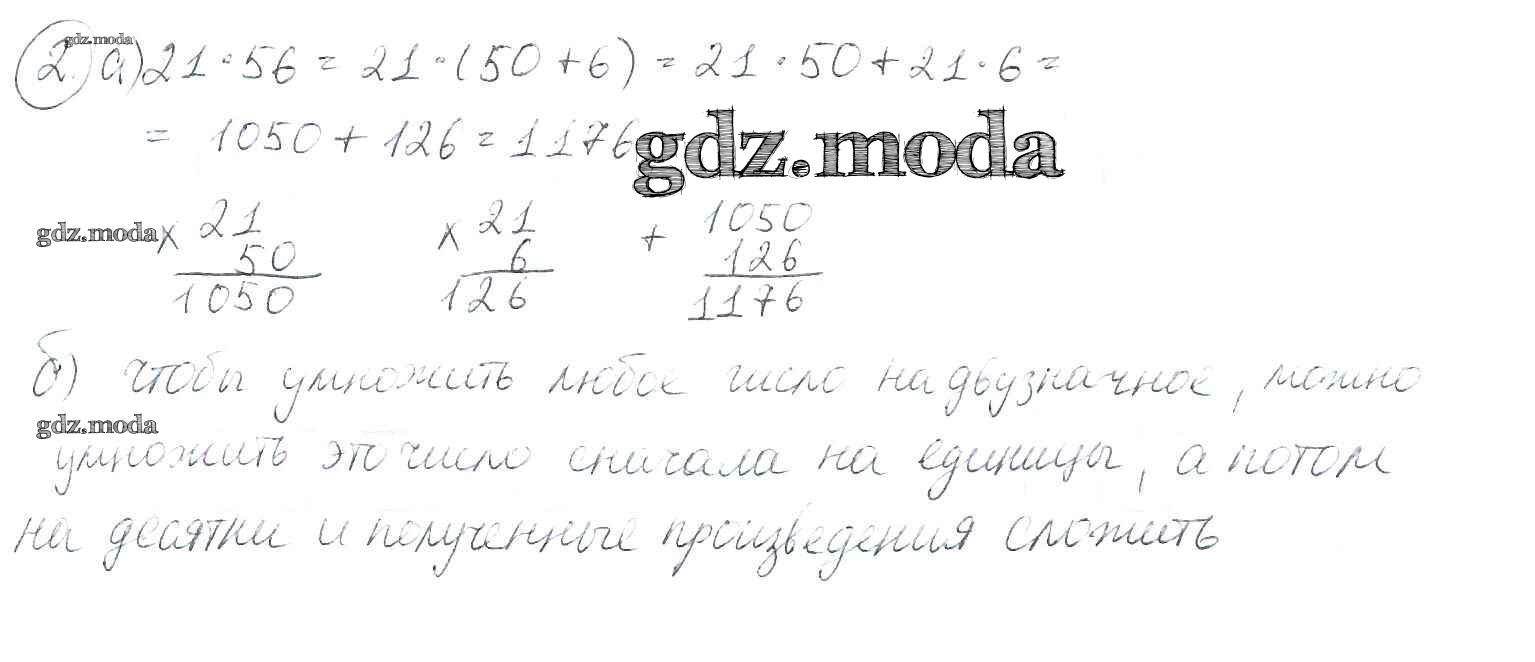 gdz.moda
2. а) 21 · 56 = 21 · (50 + 6) = 21 · 50 + 21 · 6 =
= 1050 + 126 = 1176
gdz.moda
gdz.moda
× 21 × 21 + 1050
50 6 126
1050 126 1176
б) чтобы умножить любое число на двузначное, можно
gdz.moda
умножить это число сначала на единицы, а потом
на десятки и полученные произведения сложить